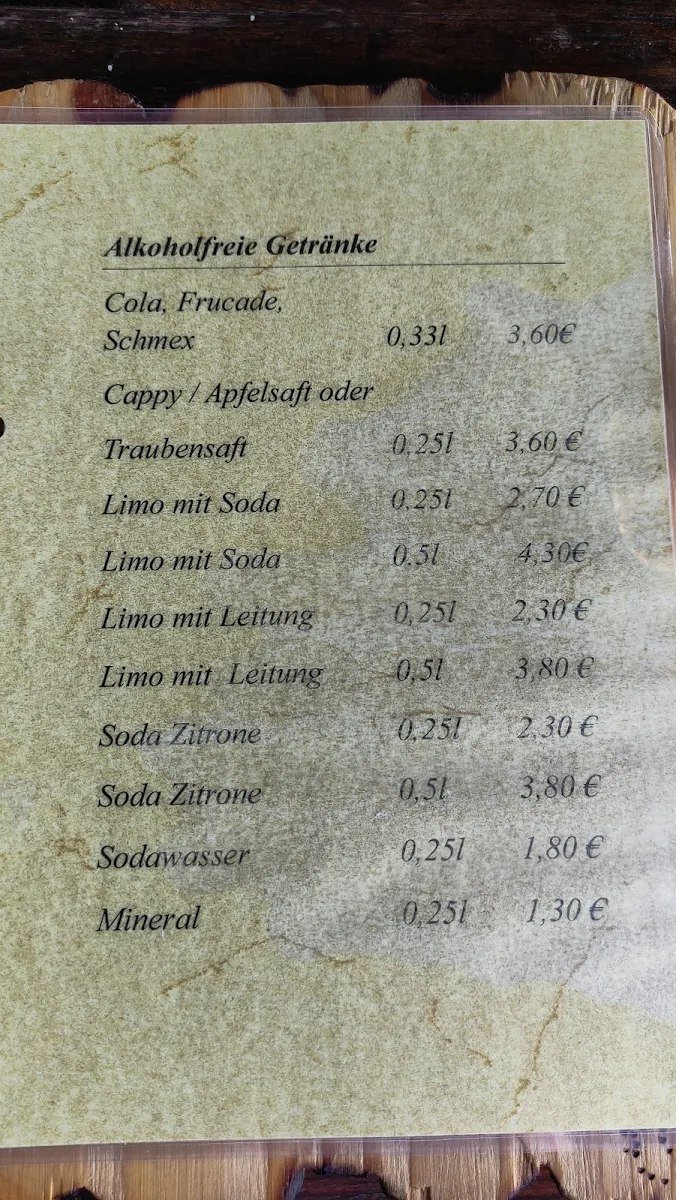 Alkoholfreie Getränke
Cola, Frucade,
Schmex 0,33l 3,60€
Cappy / Apfelsaft oder
Traubensaft 0,25l 3,60 €
Limo mit Soda 0,25l 2,70 €
Limo mit Soda 0.5l 4,30€
Limo mit Leitung 0,25l 2,30 €
Limo mit Leitung 0,5l 3,80 €
Soda Zitrone 0,25l 2,30 €
Soda Zitrone 0,5l 3,80 €
Sodawasser 0,25l 1,80 €
Mineral 0,25l 1,30 €